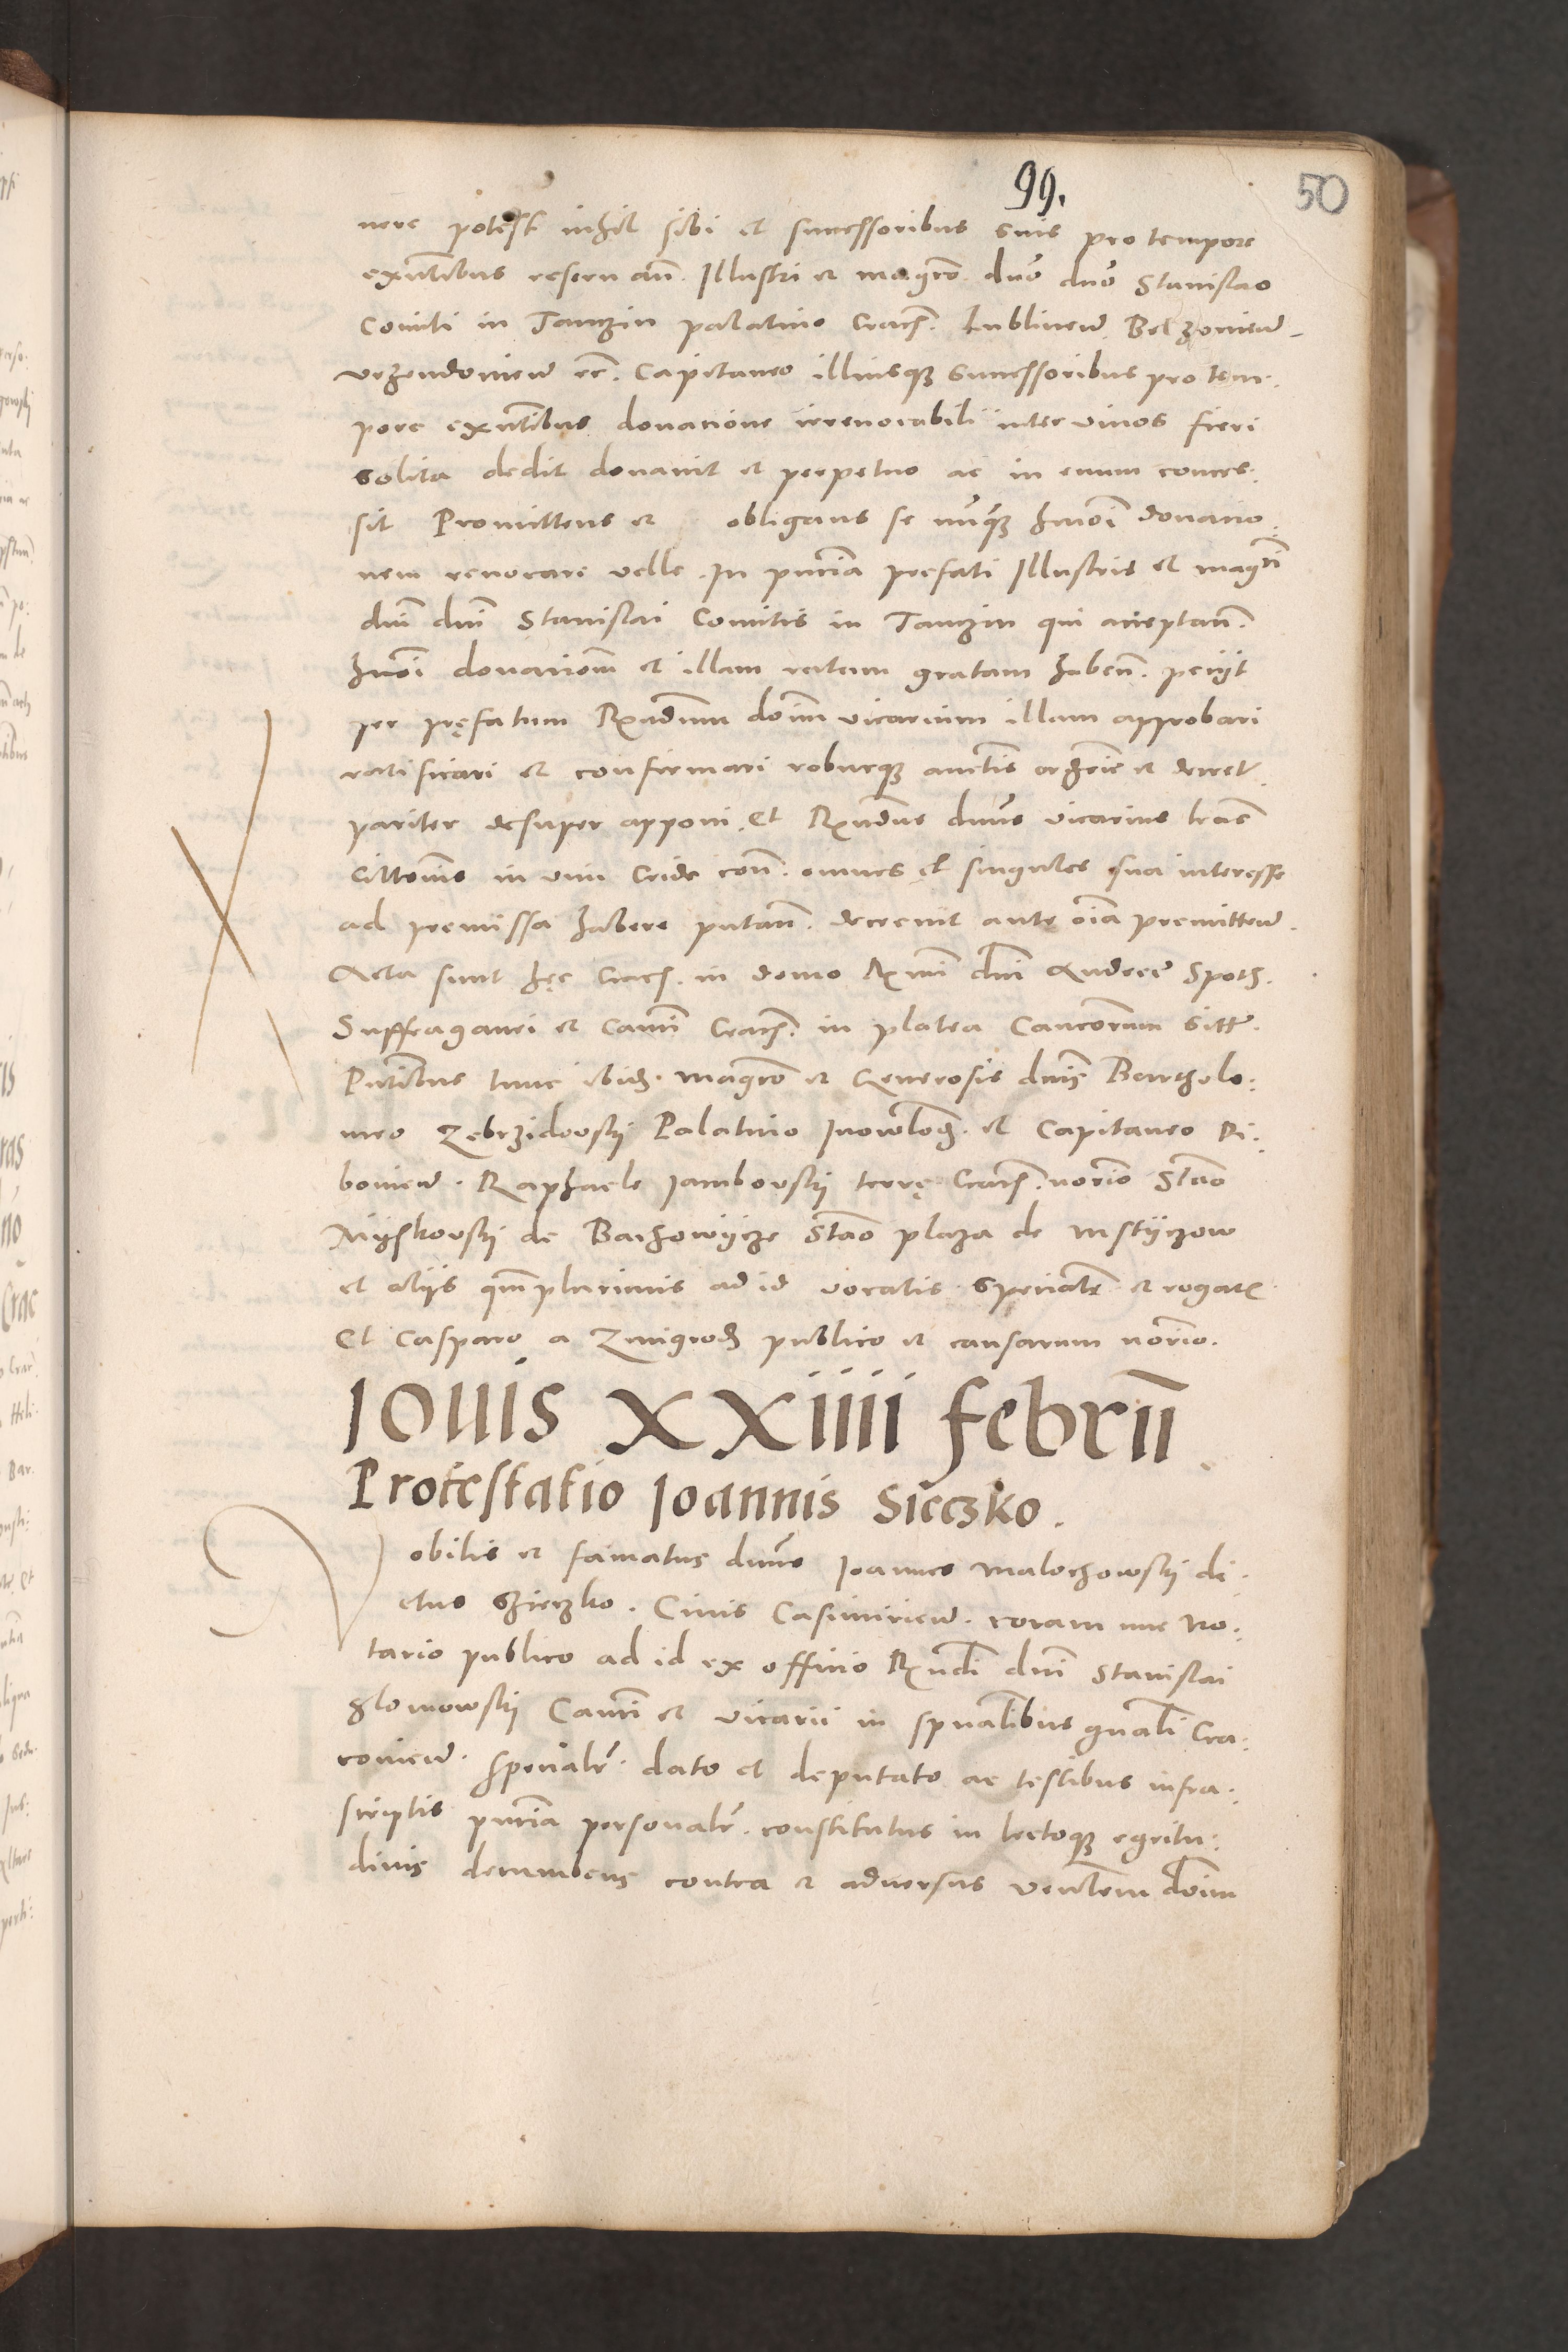 99.
50
nere potest nihil sibi et successoribus suis pro tempore
exñtibus reseruañ. Illustri et magco dno dno Stanislao
Comiti in Tanczin palatino Cracs. Lublineñ. Belzonieñ.
vrzendonieñ etc. Capitaneo illiusq3 successoribus pro tem.
pore exñtibus donatione irreuocabili inter viuos fieri
solita dedit donauit et perpetuo ac in euum conces:
sit Promittens et obligans se nuq3 hmoi donatio.
nem reuocare velle. In pntia prefati Illustris et magci
dni dni Stanislai Comitis in Tanczin qui acceptañ.
hmoi donationem et illam ratam gratam habeñ. petijt
per pręfatum Rndum dnm vicarium illam approbari
ratificari et confirmari roburq3 auctis ordinarie et decret
pariter desuper apponi. Et Rndus dnus vicarius lras
Cittonis in vim Cride coñ. omnes et singulos sua interesse
ad premissa habere putañ. decreuit ante oia premitteñ.
Acta sunt hęc Cracs. in domo Rmi dni Andree Spoth.
Suffraganei et Canci Cracs. in platea Canconorum sitt.
Pntibus tunc ibid. magco et Generosis dnis Bartholo:
meo Zebrzidovskij Palatino Inowlods. et Capitaneo Di.
bonieñ. Raphaele Jambovskij terrę Cracs. norio Stao
Myskovskij de Bachowijcze Stao plaza de Mstijczow
et alijs qmplurimis ad id vocatis specialr et rogatis
Et Casparo a Zmigrod publico et causarum norio.
Iouis XXiiii febrii
Protestatio Ioannis Sieczko.
Nobilis et famatus dnus Joannes Malochowskij di.
ctus Szieczko. Ciuis Casimirieñ. coram me No:
tario publico ad id ex officio Rndi dni Stanislai
Slomowskij Canci et vicarii in spualibus gnali Cra.
couieñ. specialr. dato et deputato ac testibus infra.
scriptis pntia personalr. constitutus in lectoq3 egritu:
dinis decumbens contra et aduersus venlem dnm